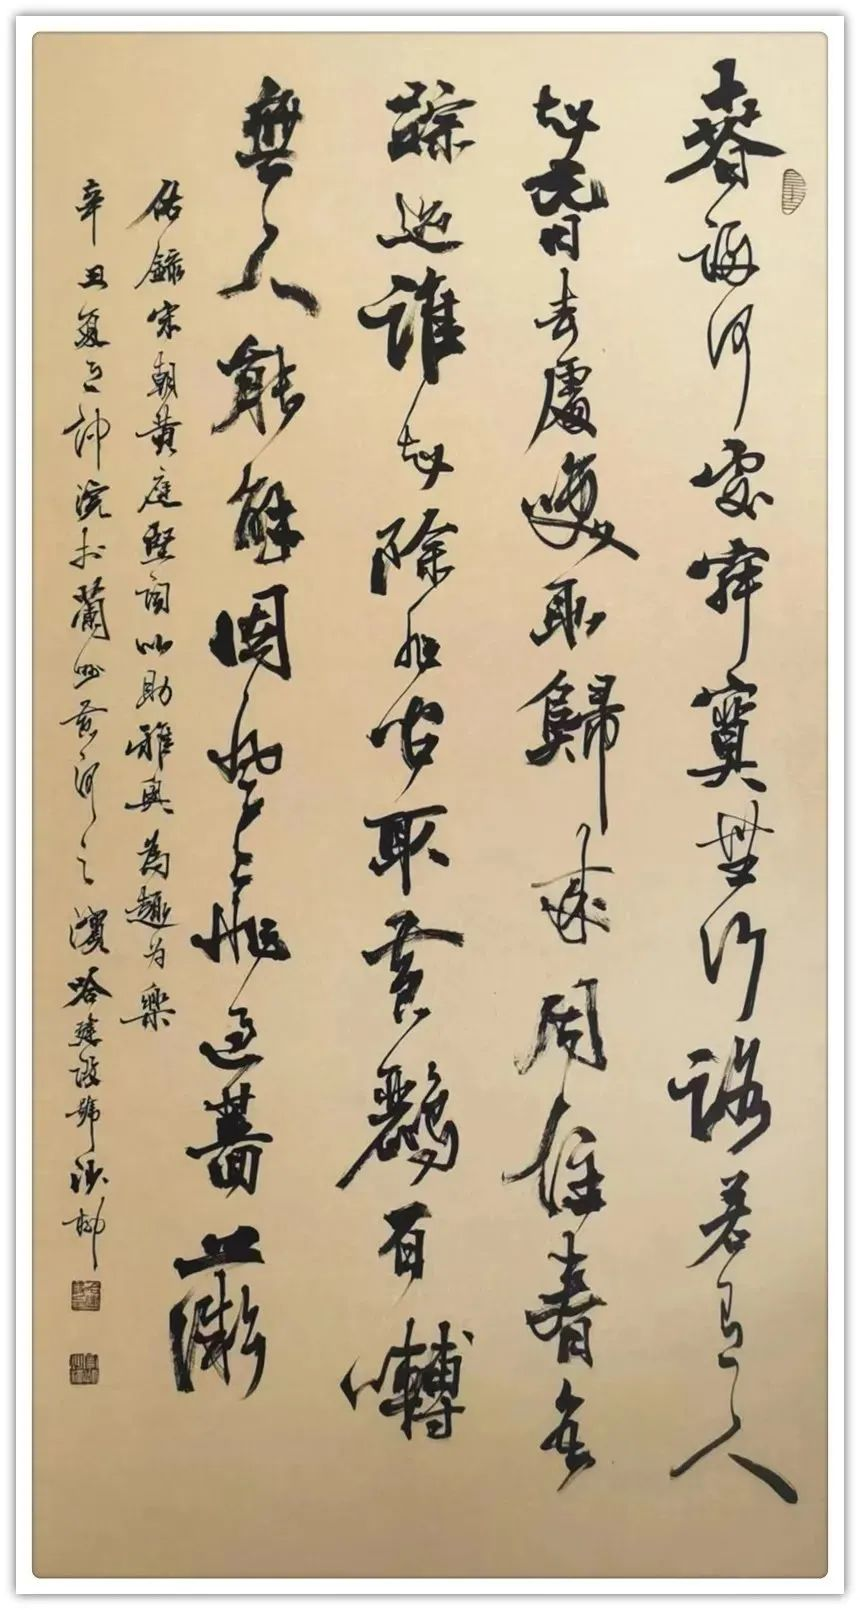 春歸何處寂寞無行路若有人
知春去處喚取歸來同住春無
踪迹誰知除非問取黃鸝百囀
無人能解因風飛過薔薇
錄宋朝黃庭堅詞以助雅興為趣為樂
辛丑夏之浣於蘭州黃河之濱哈建設號沙柳